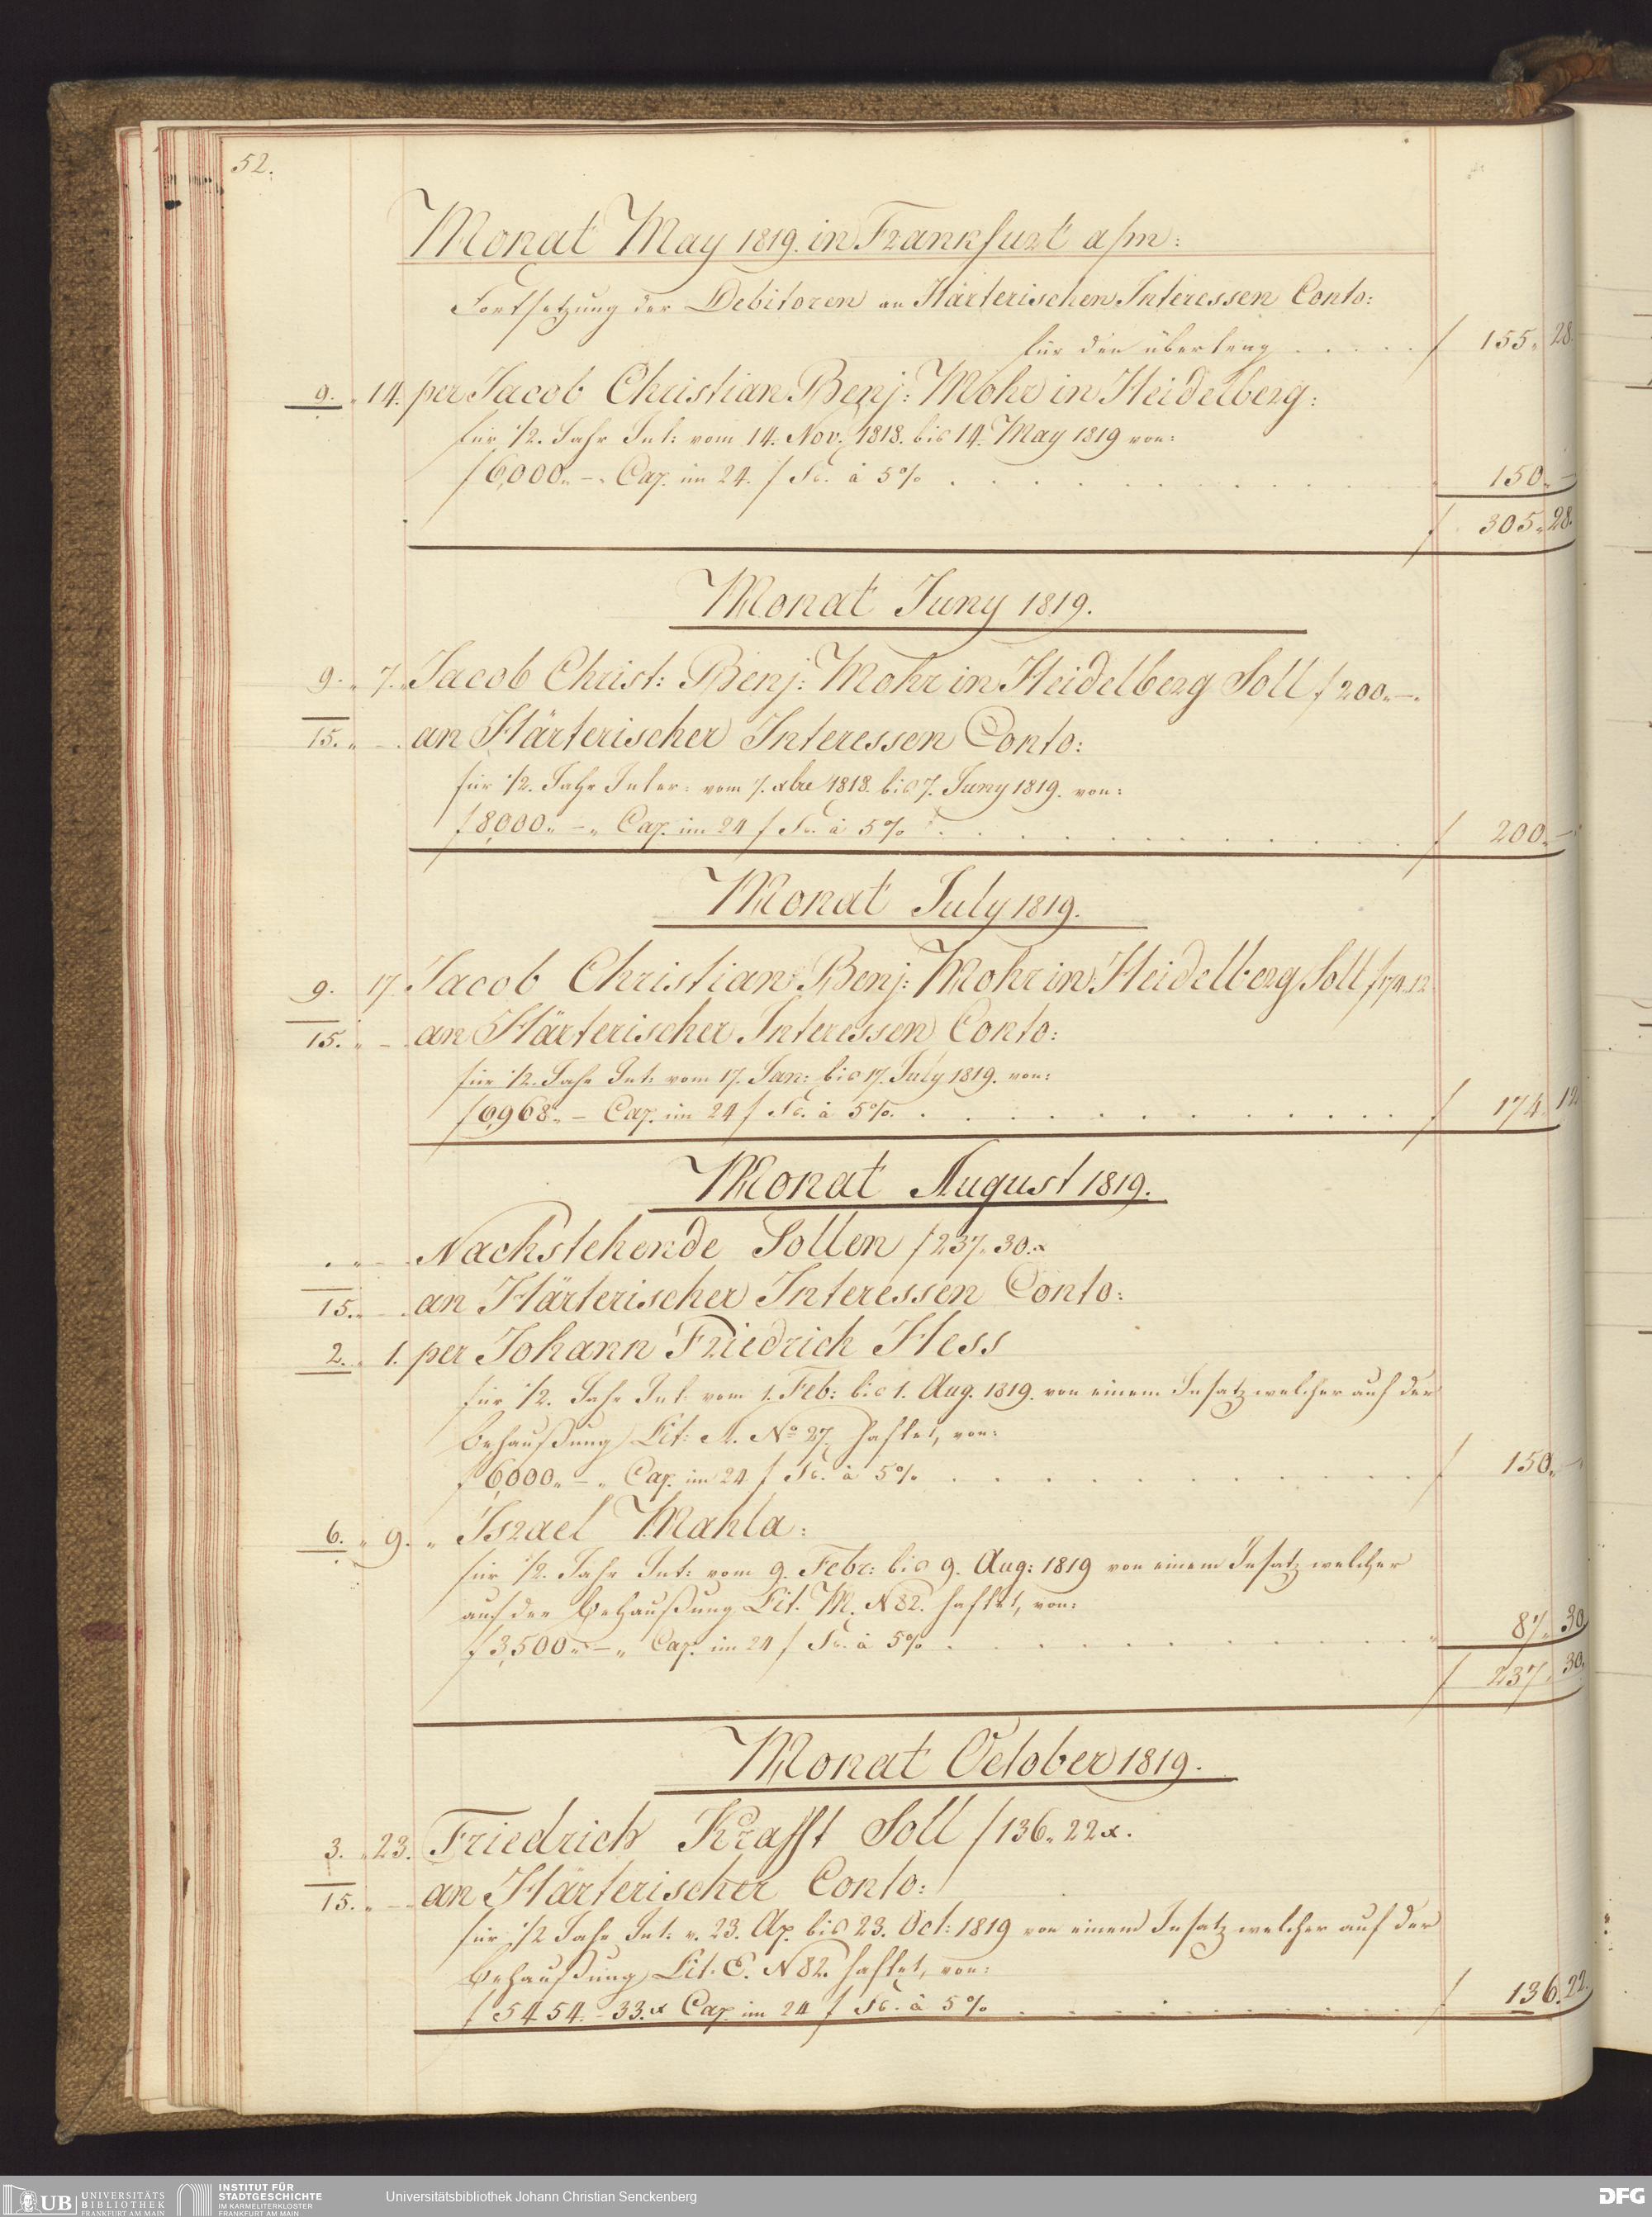 52.
Monat May 1819. in Frankfurt a/m:
Fortsetzung der Debitoren an Härterischen Interessen Conto:
für den übertrag . . . . . f 155„ 28.
9. „ 14. per Jacob Christian Benj: Mohr in Heidelberg:
für 1/2. Jahr Int: vom 14. Nov. 1818. bis 14. May 1819 von:
f 6,000„ – „ Cap. im 24. f Fs. à 5% . . . . . . . . . . 150„ –
f 305„ 28.
Monat Juny 1819.
9. „ 7. „ Jacob Christ: Benj: Mohr in Heidelberg Soll f 200„ –.
15. „ – . an Härterischer Interessen Conto:
für 1/2. Jahr Inter: vom 7. xbre 1818. bis 7. Juny 1819. von:
f 8,000„ – „ Cap. im 24 f Fs. à 5% . . . . . . . . . . f 200„ –
Monat July 1819.
9. 17. Jacob Christian Benj: Mohr in Heidelberg Soll f 174„ 12
15. „ – . an Härterischer Interessen Conto:
für 1/2. Jahr Int: vom 17. Jan: bis 17. July 1819. von:
f 6,968„ – Cap. im 24 f Fs. à 5%. . . . . . . . . . . f 174„ 12.
Monat August 1819.
. „ – . Nachstehende Sollen f 237„ 30.x
15. „ – . an Härterischer Interessen Conto:
2. „ 1. per Johann Friedrich Hess
für 1/2. Jahr Int: vom 1. Feb: bis 1. Aug. 1819. von einem Insatz welcher auf der
Behaußung Lit: A. No 27. haftet, von:
f 6,000„ – „ Cap. im 24 f Fs. à 5% . . . . . . . . . . f 150„ –
6. „ 9. „ Israel Mahla:
für 1/2. Jahr Int: vom 9. Febr: bis 9. Aug: 1819 von einem Insatz welcher
auf der Behaußung Lit. M. N 82. haftet, von:
f 3,500„ – „ Cap. im 24 f Fs. à 5% . . . . . . . . . . „ 87„ 30
f 237„ 30.
Monat October 1819.
3. „ 23. Friedrich Krafft Soll f 136„ 22 x.
15. „ – . an Härterischer Conto:
für 1/2 Jahr Int: v. 23. Ap. bis 23. Oct: 1819 von einem Insatz welcher auf der
Behaußung Lit. E. N 82. haftet, von:
f 5454. – 33.x Cap. im 24 f Fs. à 5% . . . . . . . . . . f 136. 22.
UB UNIVERSITÄTS
BIBLIOTHEK
FRANKFURT AM MAIN
INSTITUT FÜR
STADTGESCHICHTE
IM KARMELITERKLOSTER
FRANKFURT AM MAIN
Universitätsbibliothek Johann Christian Senckenberg
DFG